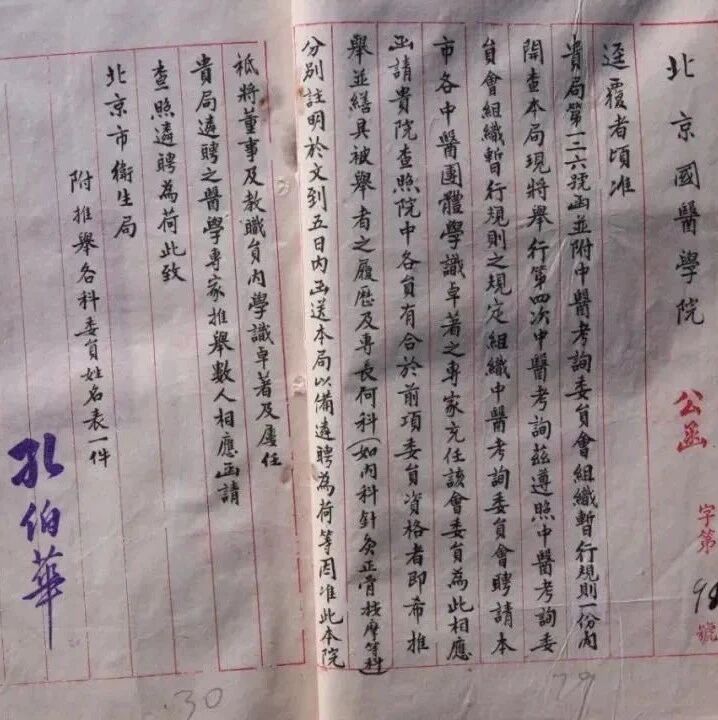 北京國醫學院
公函
字第98號
逕覆者頃准
貴局第一三六號函並附中醫考詢委員會組織暫行規則一份內
開查本局現將舉行第四次中醫考詢茲遵照中醫考詢委
員會組織暫行規則之規定組織中醫考詢委員會聘請本
市各中醫團體學識卓著之專家充任該會委員為此相應
函請貴院查照院中各員有合於前項委員資格者即希推
舉並繕具被舉者之履歷及專長何科(如內科針灸正骨按摩等科)
分別註明於文到五日內函送本局以備遴聘為荷等因准此本院
祗將董事及教職員內學識卓著及歷任
貴局遴聘之醫學專家推舉數人相應函請
查照遴聘為荷此致
北京市衛生局
附推舉各科委員姓名表一件
孔伯華
29
30